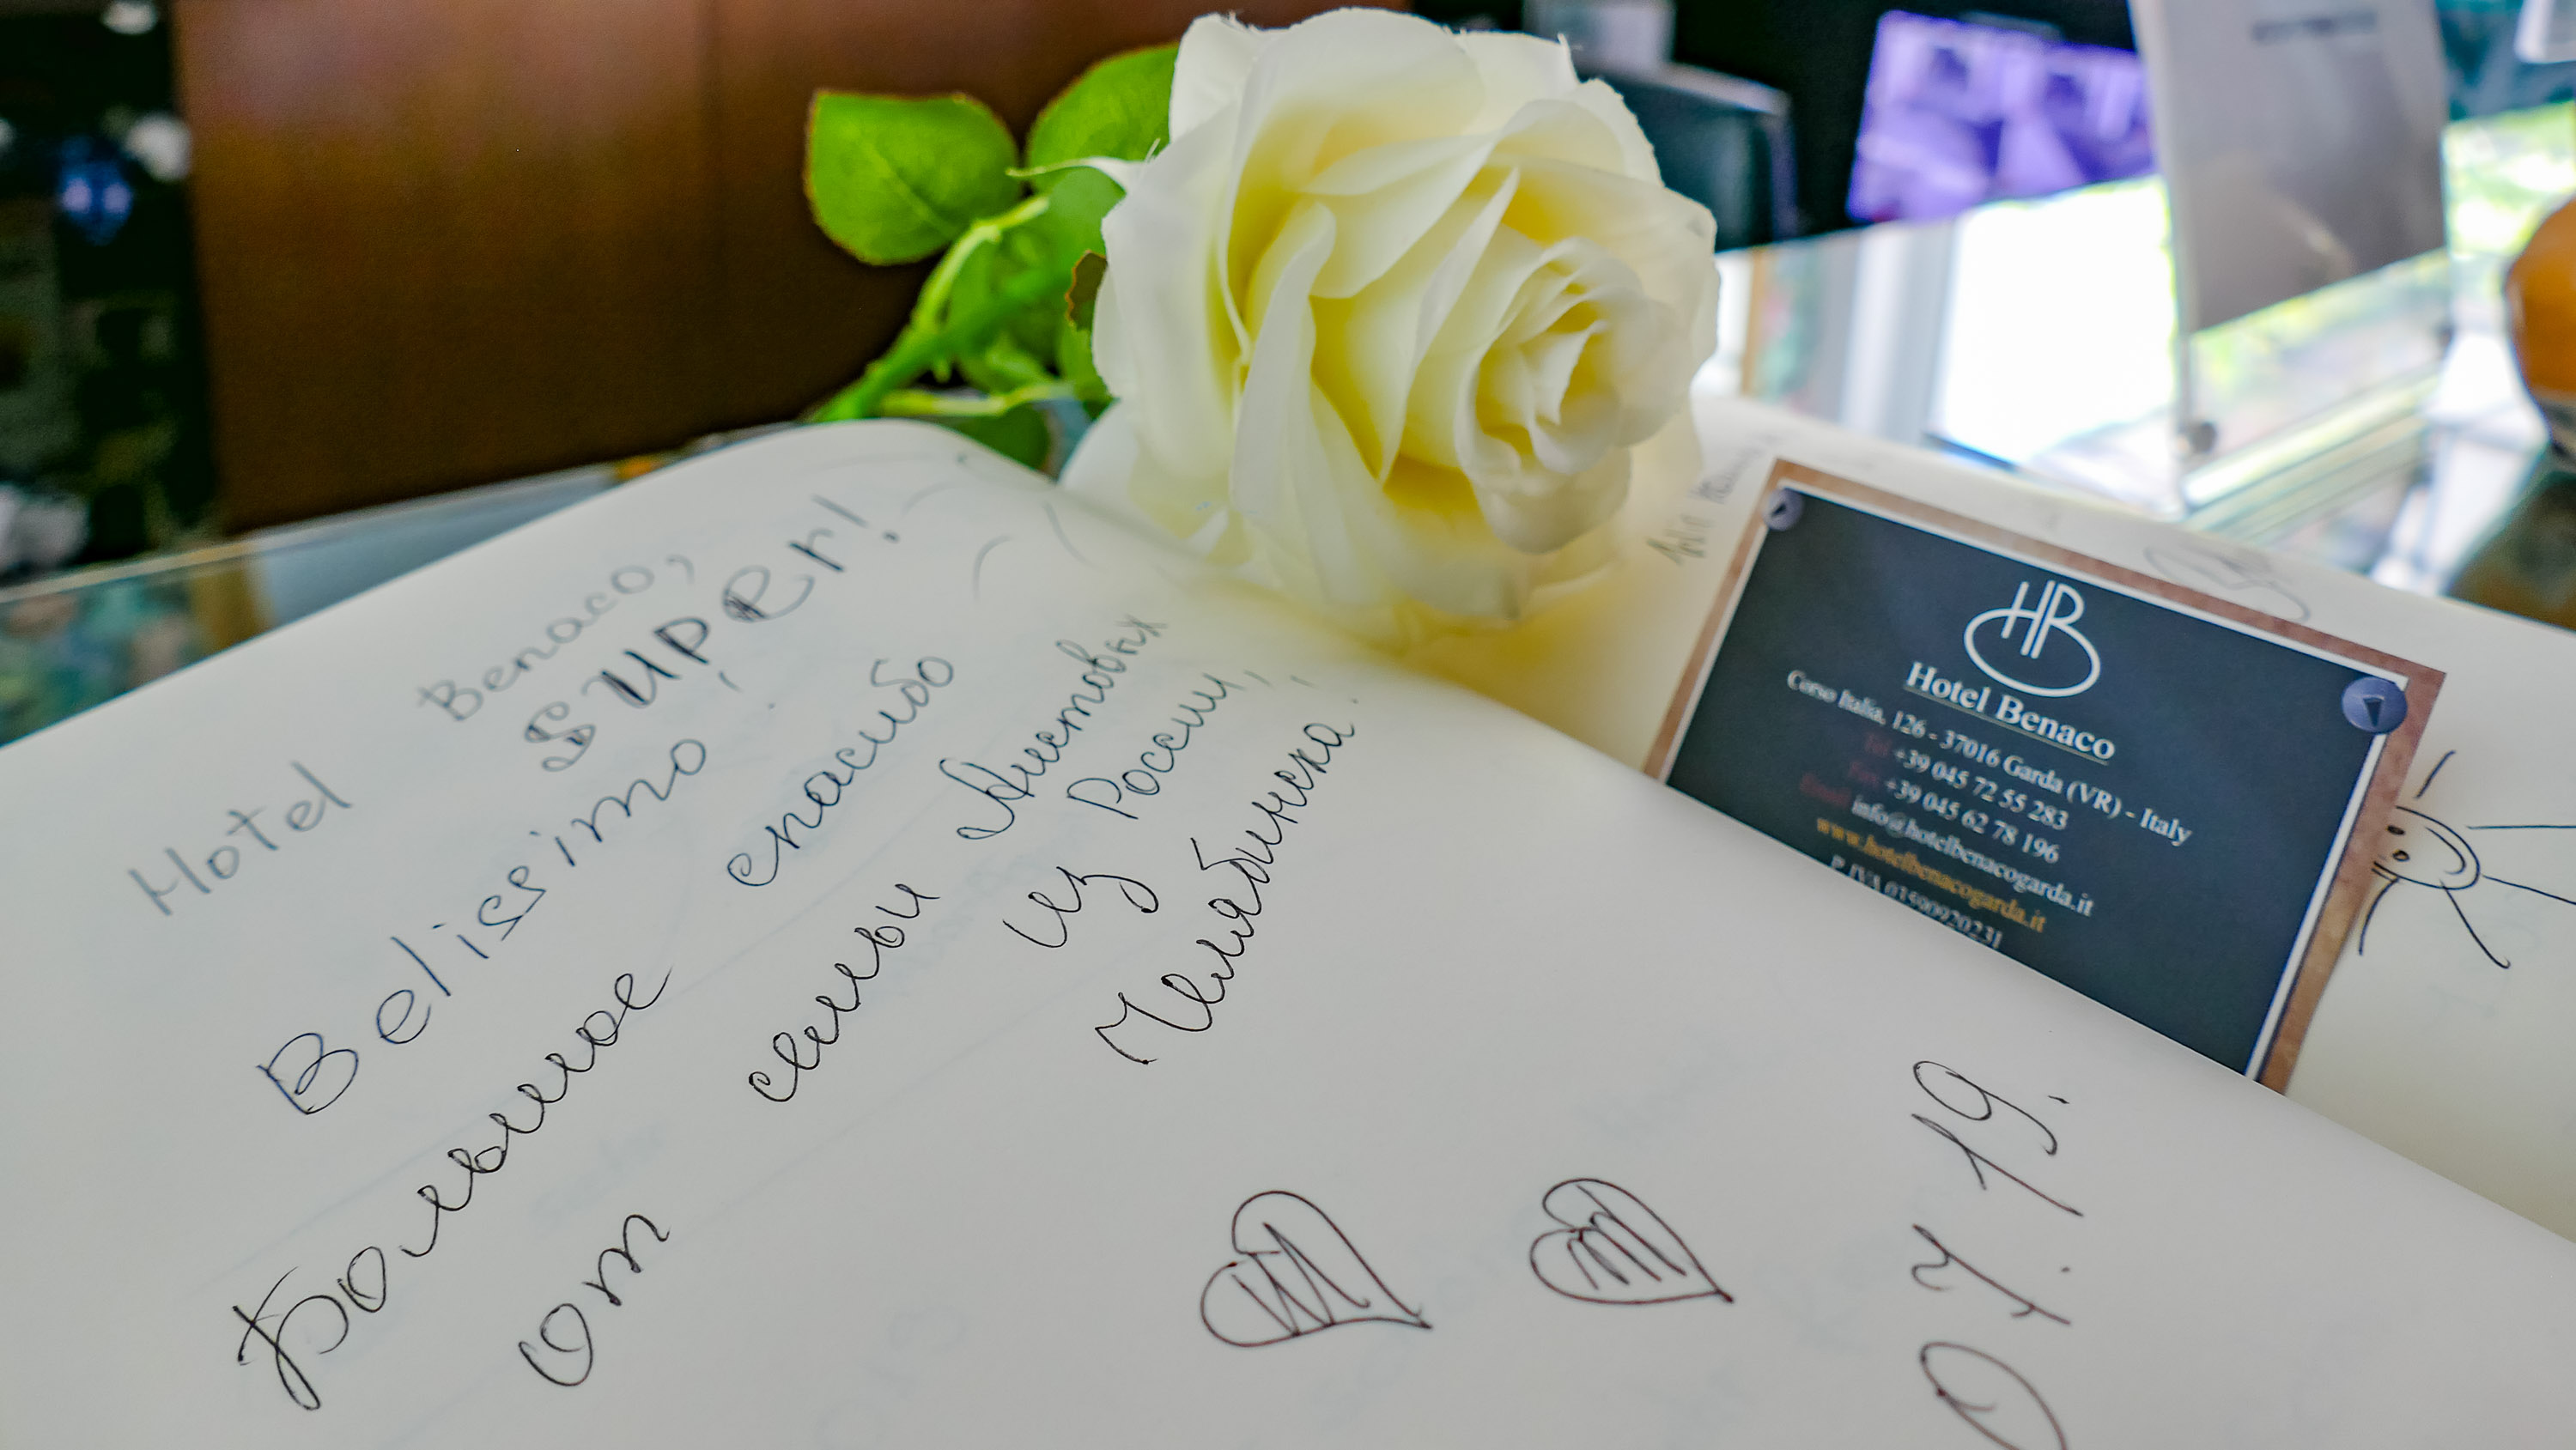 Hotel Benaco,
super!
Belissimo!
Большое спасибо
от семьи Аистовых
из России,
г. Челябинска!
07.19.
HB
Hotel Benaco
Corso Italia, 126 - 37016 Garda (VR) - Italy
Tel +39 045 72 55 283
Fax +39 045 62 78 196
Email info@hotelbenacogarda.it
www.hotelbenacogarda.it
P. IVA 03590920231